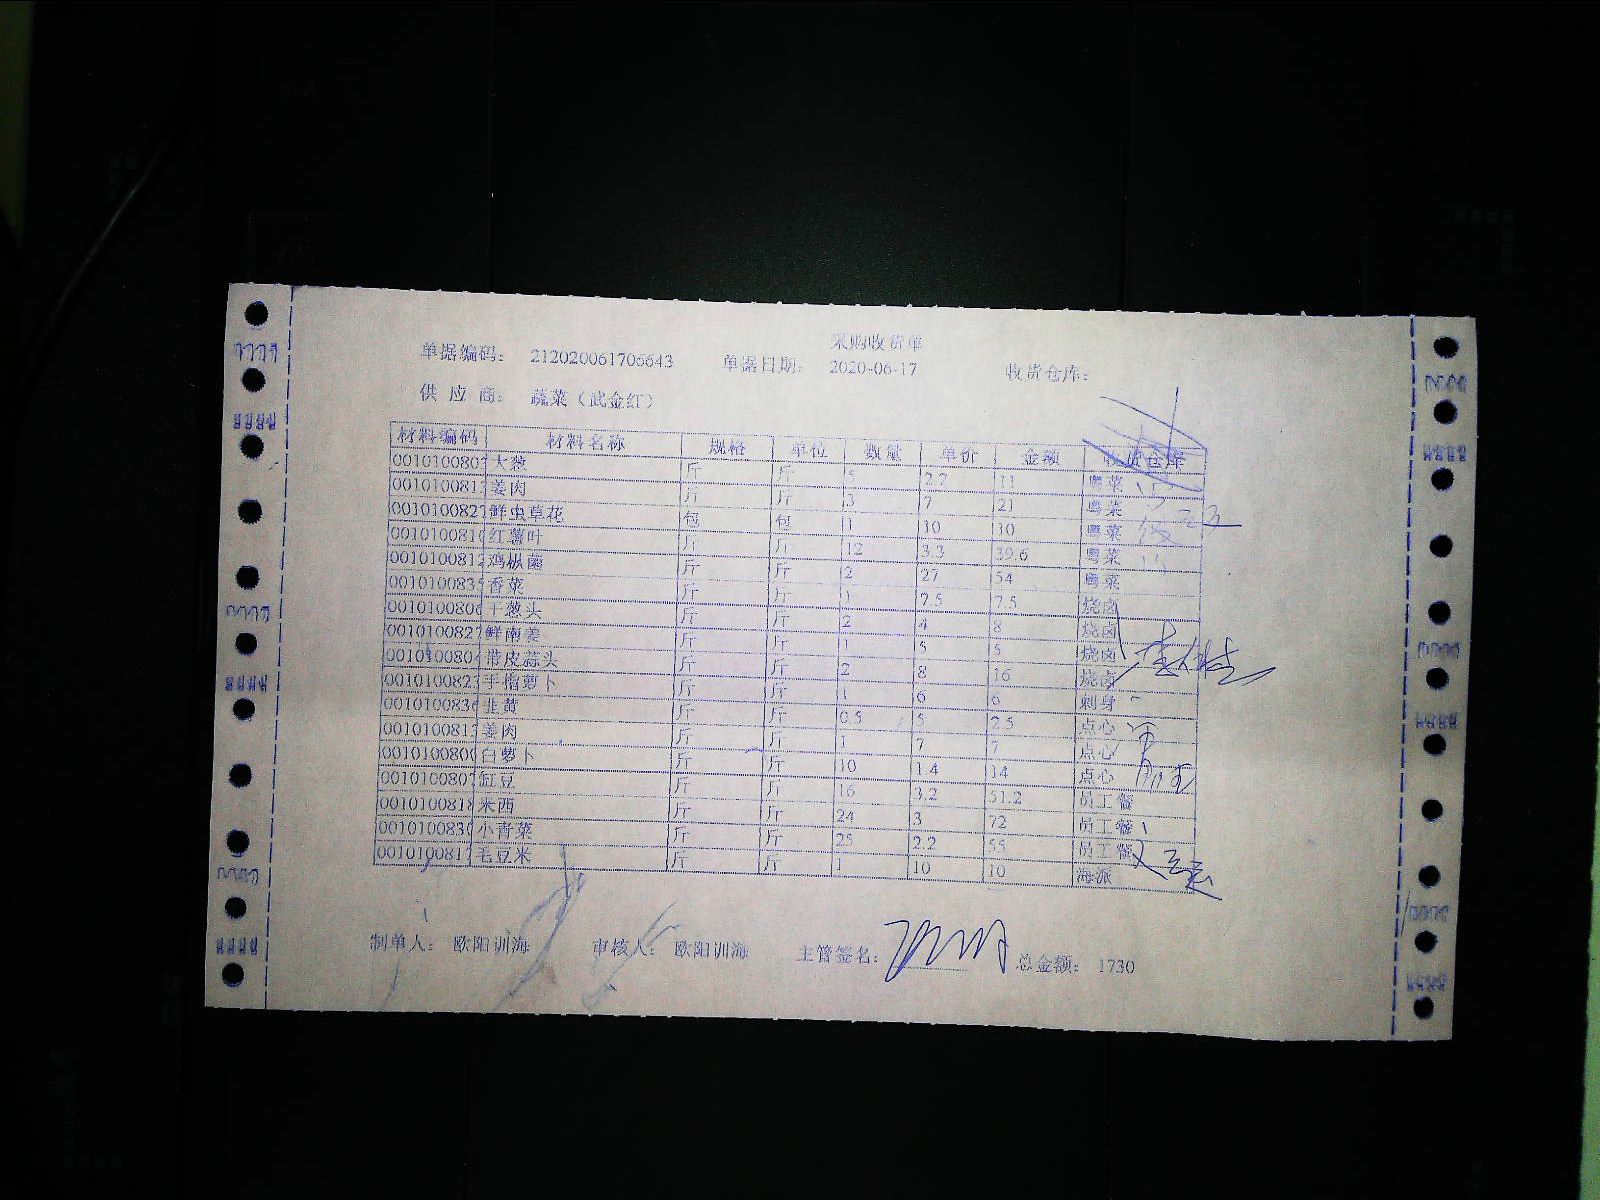 采购收货单
单据编码： 212020061706643 单据日期： 2020-06-17 收货仓库：
供 应 商： 蔬菜（武金红）
材料编码 材料名称 规格 单位 数量 单价 金额 收货仓库
0010100803 大葱 斤 斤 5 2.2 11 粤菜
001010081 姜肉 斤 斤 3 7 21 粤菜
001010082 鲜虫草花 包 包 1 10 10 粤菜
001010081 红薯叶 斤 斤 12 3.3 39.6 粤菜
001010081 鸡枞菌 斤 斤 2 27 54 粤菜
001010083 香菜 斤 斤 1 7.5 7.5 烧卤
001010080 干葱头 斤 斤 2 4 8 烧卤
001010082 鲜南姜 斤 斤 1 5 5 烧卤
001010080 带皮蒜头 斤 斤 2 8 16 烧卤
001010082 手指萝卜 斤 斤 1 6 6 刺身
001010083 韭黄 斤 斤 0.5 5 2.5 点心
001010081 姜肉 斤 斤 1 7 7 点心
001010080 白萝卜 斤 斤 10 1.4 14 点心
001010080 缸豆 斤 斤 16 3.2 51.2 员工餐
001010081 米西 斤 斤 24 3 72 员工餐
001010083 小青菜 斤 斤 25 2.2 55 员工餐
001010081 毛豆米 斤 斤 1 10 10 海派
制单人： 欧阳训海 审核人： 欧阳训海 主管签名： 总金额： 1730